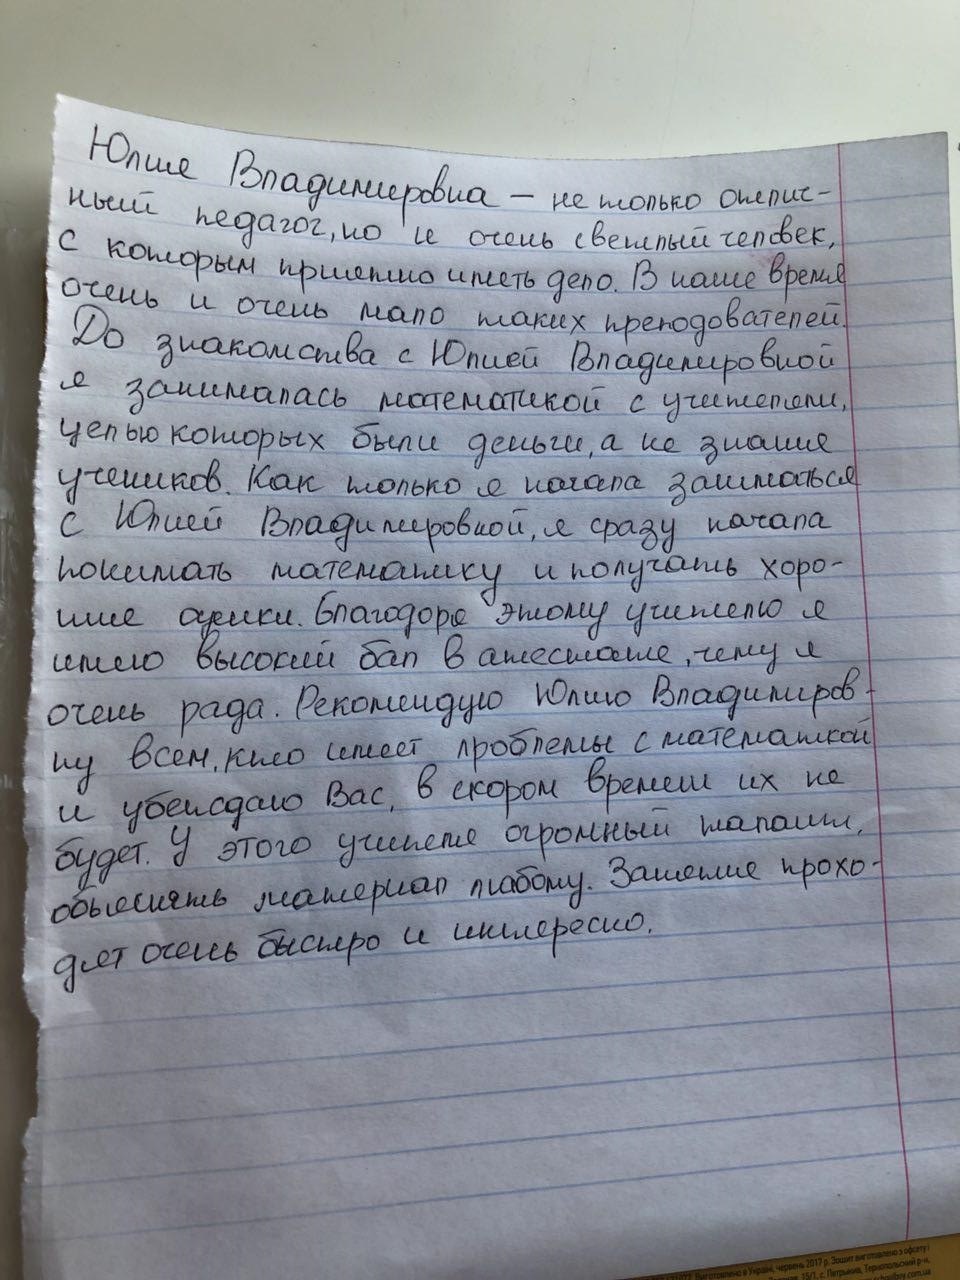 Юлия Владимировна – не только отлич-
ный педагог, но и очень светлый человек,
с которым приятно иметь дело. В наше время
очень и очень мало таких преподователей.
До знакомства с Юлией Владимировной
я занималась математикой с учителями,
целью которых были деньги, а не знания
учеников. Как только я начала заниматься
с Юлией Владимировной, я сразу начала
понимать математику и получать хоро-
шие оценки. Благодоря этому учителю я
имею высокий бал в атестате, чему я
очень рада. Рекомендую Юлию Владимиров-
ну всем, кто имеет проблемы с математикой
и убеждаю Вас, в скором времени их не
будет. У этого учителя огромный талант,
обьяснять материал любому. Занятие прохо-
дят очень быстро и интересно.
Виготовлено в Україні, червень 2017 р. Зошит виготовлено з офсету і
15/3, с. Петриків, Тернопольский р-н,